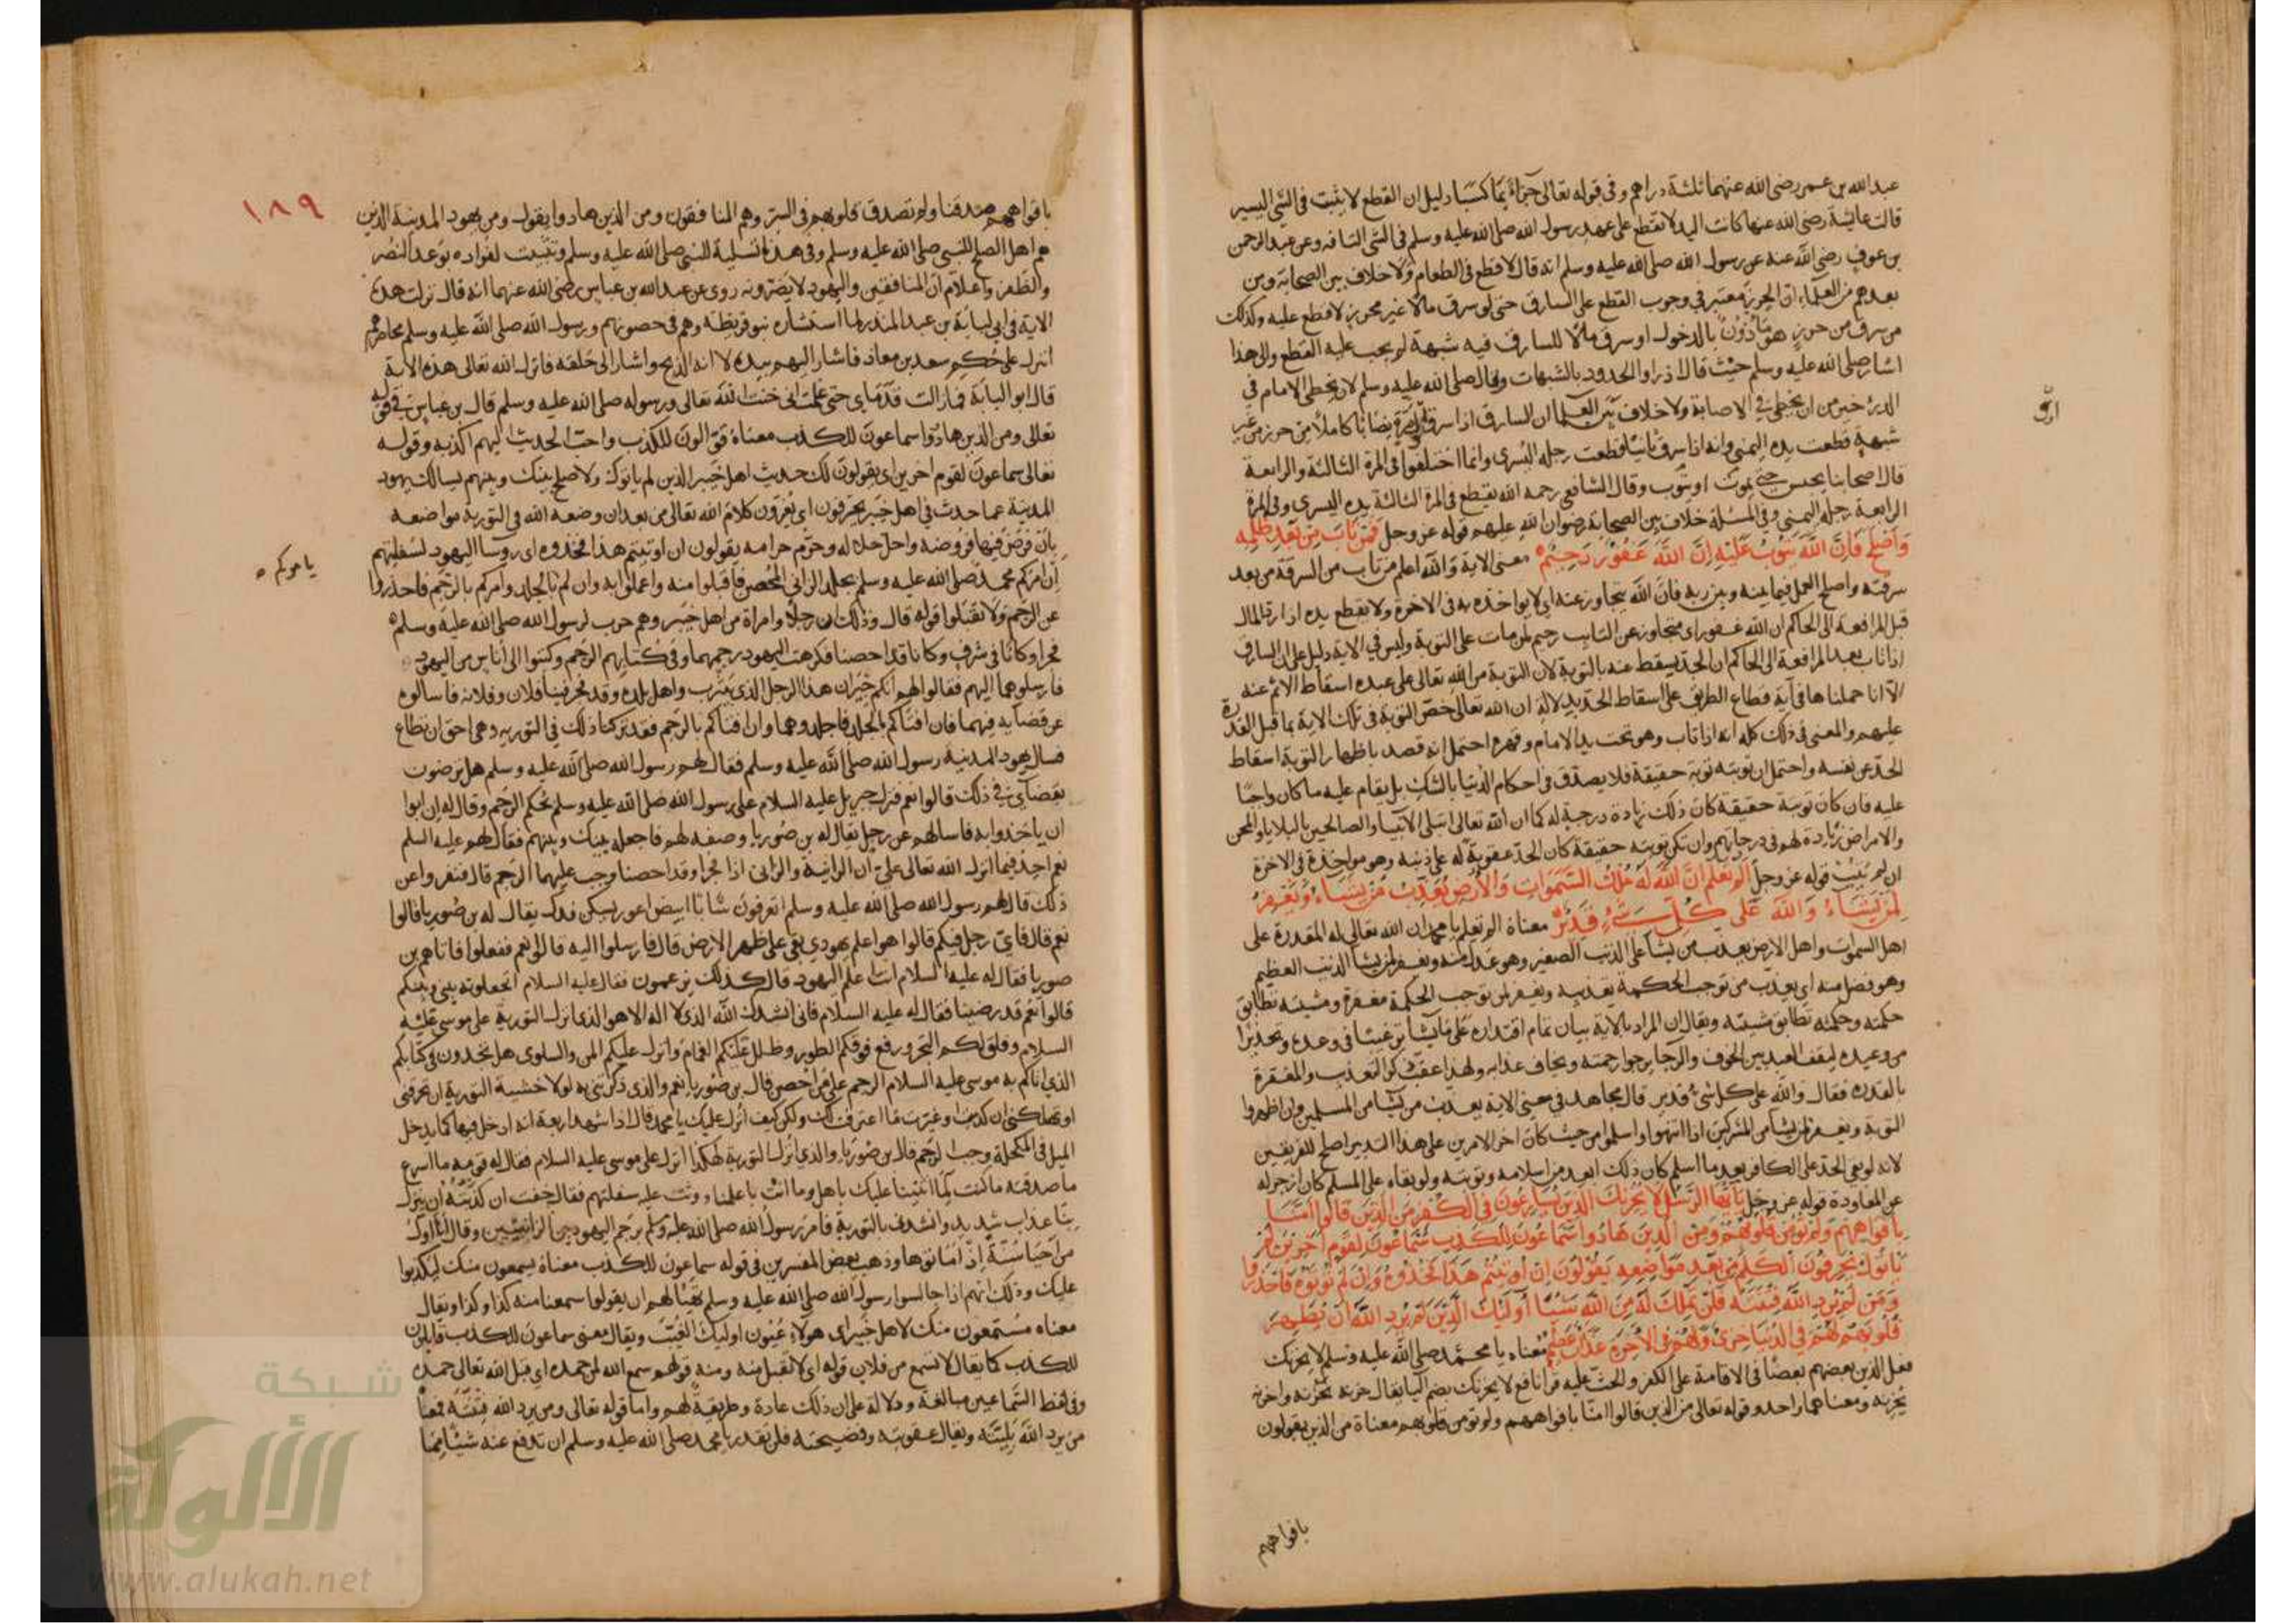 عبدالله بن عمر رضى الله عنهما ثلثة دراهم وفى قوله تعالى جزآءً بما كسبا دليل ان القطع لا يثبت فى الشئ اليسير
قالت عائشة رضى الله عنها كانت اليد لا تقطع على عهد رسول الله صلى الله عليه وسلم فى الشئ التافه وعن عبد الرحمن
بن عوفٍ رضى الله عنه عن رسول الله صلى الله عليه وسلم انه قال لا قطع فى الطعام ولا خلاف بين الصحابة ومن
بعدهم من العلماء ان الحرز معتبر فى وجوب القطع على السارق حتى لو سرق مالا غير محرز لا قطع عليه وكذلك
من سرق من حرزٍ هو مأذون بالدخول او سرق مالا للسارق فيه شبهة لم يجب عليه القطع والى هذا
اشار صلى الله عليه وسلم حيث قال ادرأوا الحدود بالشبهات وقال صلى الله عليه وسلم لان يخطى الامام فى
الدرء خير من ان يخطى فى الاصابة ولا خلاف بين العلما ان السارق اذا سرق نصابا كاملا من حرز من غير
شبهة قطعت يده اليمنى وانه اذا سرق ثانيا قطعت رجله اليسرى وانما اختلفوا فى المرة الثالثة والرابعة
قال اصحابنا يحبس حتى يموت او يتوب وقال الشافعى رحمه الله يقطع فى المرة الثالثة يده اليسرى وفى المرة
الرابعة رجله اليمنى وفى المسئلة خلاف بين الصحابة رضوان الله عليهم قوله عز وجل فمن تاب من بعد ظلمه
واصلح فان الله يتوب عليه ان الله غفور رحيم معنى الاية والله اعلم من تاب من السرقة من بعد
سرقته واصلح العمل فيما بينه وبين ربه فان الله يتجاوز عنه اى لا يؤاخذه به فى الاخرة ولا تقطع يده اذا رد المال
قبل المرافعة الى الحاكم ان الله غفور اى متجاوز عن التايب رحيم لمن مات على التوبة وليس فى الاية دليل على ان السارق
اذا تاب بعد المرافعة الى الحاكم ان الحد يسقط عنه بالتوبة لان التوبة من الله تعالى على عبده اسقاط الاثم عنه
الا انا حملناها فى آية قطاع الطريق على اسقاط الحد بدلالة ان الله تعالى خص التوبة فى تلك الاية بما قبل القدرة
عليهم والمعنى فى ذلك كله انه اذا تاب وهو تحت يد الامام وقهره احتمل انه قصد باظهار التوبة اسقاط
الحد عن نفسه واحتمل ان توبته توبة حقيقة فلا يصدق فى احكام الدنيا بالشك بل يقام عليه ما كان واجبًا
عليه فان كان توبته حقيقة كان ذلك زيادة درجة له كما ان الله تعالى ابتلى الانبياء والصالحين بالبلايا والمحن
والامراض زيادة لهم فى درجاتهم وان لم تكن توبته حقيقة كان الحد عقوبة له على ذنبه وهو مواخذ فى الاخرة
ان لم يتب قوله عز وجل الم تعلم ان الله له ملك السموات والارض يعذب من يشاء ويغفر
لمن يشاء والله على كل شىء قدير معناه الم تعلم يا محمد ان الله تعالى له المقدرة على
اهل السموات واهل الارض يعذب من يشأ على الذنب الصغير وهو عدل منه ويغفر لمن يشأ الذنب العظيم
وهو فضل منه اى يعذب من توجب الحكمة تعذيبه ويغفر لمن توجب الحكمة مغفرة ومشيته تطابق
حكمته وحكمته تطابق مشيته ويقال ان المراد بالاية بيان تمام اقتداره على ما يشأ ترغيبًا فى وعده وتحذيرًا
من وعيده ليقف العبد بين الخوف والرجا يرجوا رحمته ويخاف عذابه ولهذا عقب ذكر التعذيب والمغفرة
بالقدرة فقال والله على كل شىء قدير قال مجاهد فى معنى الاية يعذب من يشأ من المسلمين وان اظهروا
التوبة ويغفر لمن يشأ من المشركين اذا انتهوا واسلموا من حيث كان اخر الامرين على هذا التدبير اصلح للفريقين
لانه لو بقى الحد على الكافر بعد ما اسلم كان ذلك ابعد من اسلامه وتوبته ولو بقاه على المسلم كان ازجر له
عن المعاودة قوله عز وجل يا ايها الرسول لا يحزنك الذين يسارعون فى الكفر من الذين قالوا امنا
بافواههم ولم تؤمن قلوبهم ومن الذين هادوا سماعون للكذب سماعون لقوم اخرين لم
ياتوك يحرفون الكلم من بعد مواضعه يقولون ان اوتيتم هذا فخذوه وان لم تؤتوه فاحذروا
ومن يرد الله فتنته فلن تملك له من الله شيئا اوليك الذين لم يرد الله ان يطهر
قلوبهم لهم فى الدنيا خزى ولهم فى الاخرة عذاب عظيم معناه يا محمد صلى الله عليه وسلم لا يحزنك
فعل الذين بعضهم بعضًا فى الاقامة على الكفر والحث عليه قرأ نافع لا يحزنك بضم اليا يقال حزنه يحزنه واحزنه
يحزنه ومعناهما واحد وقوله تعالى من الذين قالوا امنا بافواههم ولم تؤمن قلوبهم معناه من الذين يقولون
بافواههم
١٨٩
بافواههم صدقنا ولم تصدق قلوبهم فى السر وهم المنافقون ومن الذين هادوا يقول ومن يهود المدينة الذين
هم اهل الصلح للنبى صلى الله عليه وسلم وفى هذا تسلية للنبى صلى الله عليه وسلم وتثبيت لفواده بوعد النصر
والظفر واعلام ان المنافقين واليهود لا يضرونه روى عن عبد الله بن عباس رضى الله عنهما انه قال نزلت هذه
الاية فى ابى لبابة بن عبد المنذر لما استشاره بنو قريظة وهم فى حصونهم ورسول الله صلى الله عليه وسلم محاصرهم
انزل على حكم سعد بن معاذ فاشار اليهم بيده لا انه الذبح واشار الى حلقه فانزل الله تعالى هذه الاية
قال ابو البابة فما زالت قدماى حتى علمت انى خنت الله تعالى ورسوله صلى الله عليه وسلم قال بن عباس فى قوله
تعالى ومن الذين هادوا سماعون للكذب معناه قوالون للكذب واحب الحديث اليهم اكذبه وقوله
تعالى سماعون لقوم اخرين اى يقولون لك حديث اهل خيبر الذين لم ياتوك ولا صلح بينك وبينهم ليسالك يهود
المدينة عما حدث فى اهل خيبر يحرفون اى يغيرون كلام الله تعالى من بعد ان وضعه الله فى التورية مواضعه
بان فرض فيها فروضه واحل حلاله وحرم حرامه يقولون ان اوتيتم هذا فخذوه اى روسا اليهود لسفلتهم
ان امركم محمد صلى الله عليه وسلم بجلد الزانى المحصن فاقبلوا منه واعملوا به وان لم بالجلد وامركم بالرجم فاحذروا
يامركم
عن الرجم ولا تقبلوا قوله قال وذلك ان رجلا وامراة من اهل خيبر وهم حرب لرسول الله صلى الله عليه وسلم
فجرا وكانا فى شرفٍ وكانا قد احصنا فكرهت اليهود رجمهما وفى كتابهم الرجم وكتبوا الى اناس من اليهود
فارسلوهما اليهم فقالوا لهم انكم جيران هذا الرجل الذى بيثرب واهل بلده وقد فجر فينا فلان وفلانة فاسالوه
عن قضآيه فيهما فان افتاكم بالجلد فاجلدوهما وان افتاكم بالرجم فقد تركنا ذلك فى التورية وهى احق ان تطاع
فسال يهود المدينة رسول الله صلى الله عليه وسلم فقال لهم رسول الله صلى الله عليه وسلم هل ترضون
بقضآى فى ذلك قالوا نعم فنزل جبريل عليه السلام على رسول الله صلى الله عليه وسلم بحكم الرجم وقال له ان ابوا
ان ياخذوا به فاسالهم عن رجل يقال له بن صوريا وصفه لهم فاجعله بينك وبينهم فقال لهم عليه السلم
نعم اجد فيما انزل الله تعالى على ان الزانية والزانى اذا فجرا وقد احصنا وجب عليهما الرجم قال فنفروا عن
ذلك قال لهم رسول الله صلى الله عليه وسلم اتعرفون شابا ابيض اعور يسكن فدك يقال له بن صوريا قالوا
نعم قال فاى رجل فيكم قالوا هو اعلم يهودى بقى على ظهر الارض قال فارسلوا اليه قالوا نعم ففعلوا فاتاهم بن
صوريا فقال له عليه السلام انت اعلم اليهود قال كذلك يزعمون فقال عليه السلام اتجعلونه بينى وبينكم
قالوا نعم قد رضينا فقال له عليه السلام فانى انشدك الله الذى لا اله الا هو الذى انزل التورية على موسى عليه
السلام وفلق لكم البحر ورفع فوقكم الطور وظلل عليكم الغمام وانزل عليكم المن والسلوى هل تجدون فى كتابكم
الذى اتاكم به موسى عليه السلام الرجم على من احصن قال بن صوريا نعم والذى ذكرتنى به لولا خشية التورية ان تحرقنى
او تهلكنى ان كذبت وغيرت ما اعترفت لك ولكن كيف انزل عليك يا محمد قال اذا شهد اربعة انه ادخل فيها كما يدخل
الميل فى المكحلة وجب الرجم قال بن صوريا والذى انزل التورية لهكذا انزل على موسى عليه السلام فقال له قومه ما اسرع
ما صدقته ما كنت لما اثنينا عليك باهل وما انت باعلمنا وثب عليه سفلتهم فقال خفت ان كذبته ان ينزل
بنا عذاب شديد وانشدنى بالتورية فامر رسول الله صلى الله عليه وسلم برجم اليهوديين الزانيين وقال انا اول
من احيا سنة اذ اماتوها وذهب بعض المفسرين فى قوله سماعون للكذب معناه يسمعون منك ليكذبوا
عليك وذلك انهم اذا جالسوا رسول الله صلى الله عليه وسلم تهيا لهم ان يقولوا سمعنا منه كذا وكذا ويقال
معناه مستمعون منك لاهل خيبر اى هولاء عيون اوليك الغيب ويقال معنى سماعون للكذب قابلون
للكذب كما يقال لا تسمع من فلان قوله اى لا تقبل منه ومنه قولهم سمع الله لمن حمده اى قبل الله تعالى حمده
وفى لفظ السماعين مبالغة ودلالة على ان ذلك عادة وطريقة لهم واما قوله تعالى ومن يرد الله فتنته فمعناه
من يرد الله بليته ويقال عقوبته وفضيحته فلن تقدر يا محمد صلى الله عليه وسلم ان تدفع عنه شيئا مما
شبكة
الألوكة
www.alukah.net